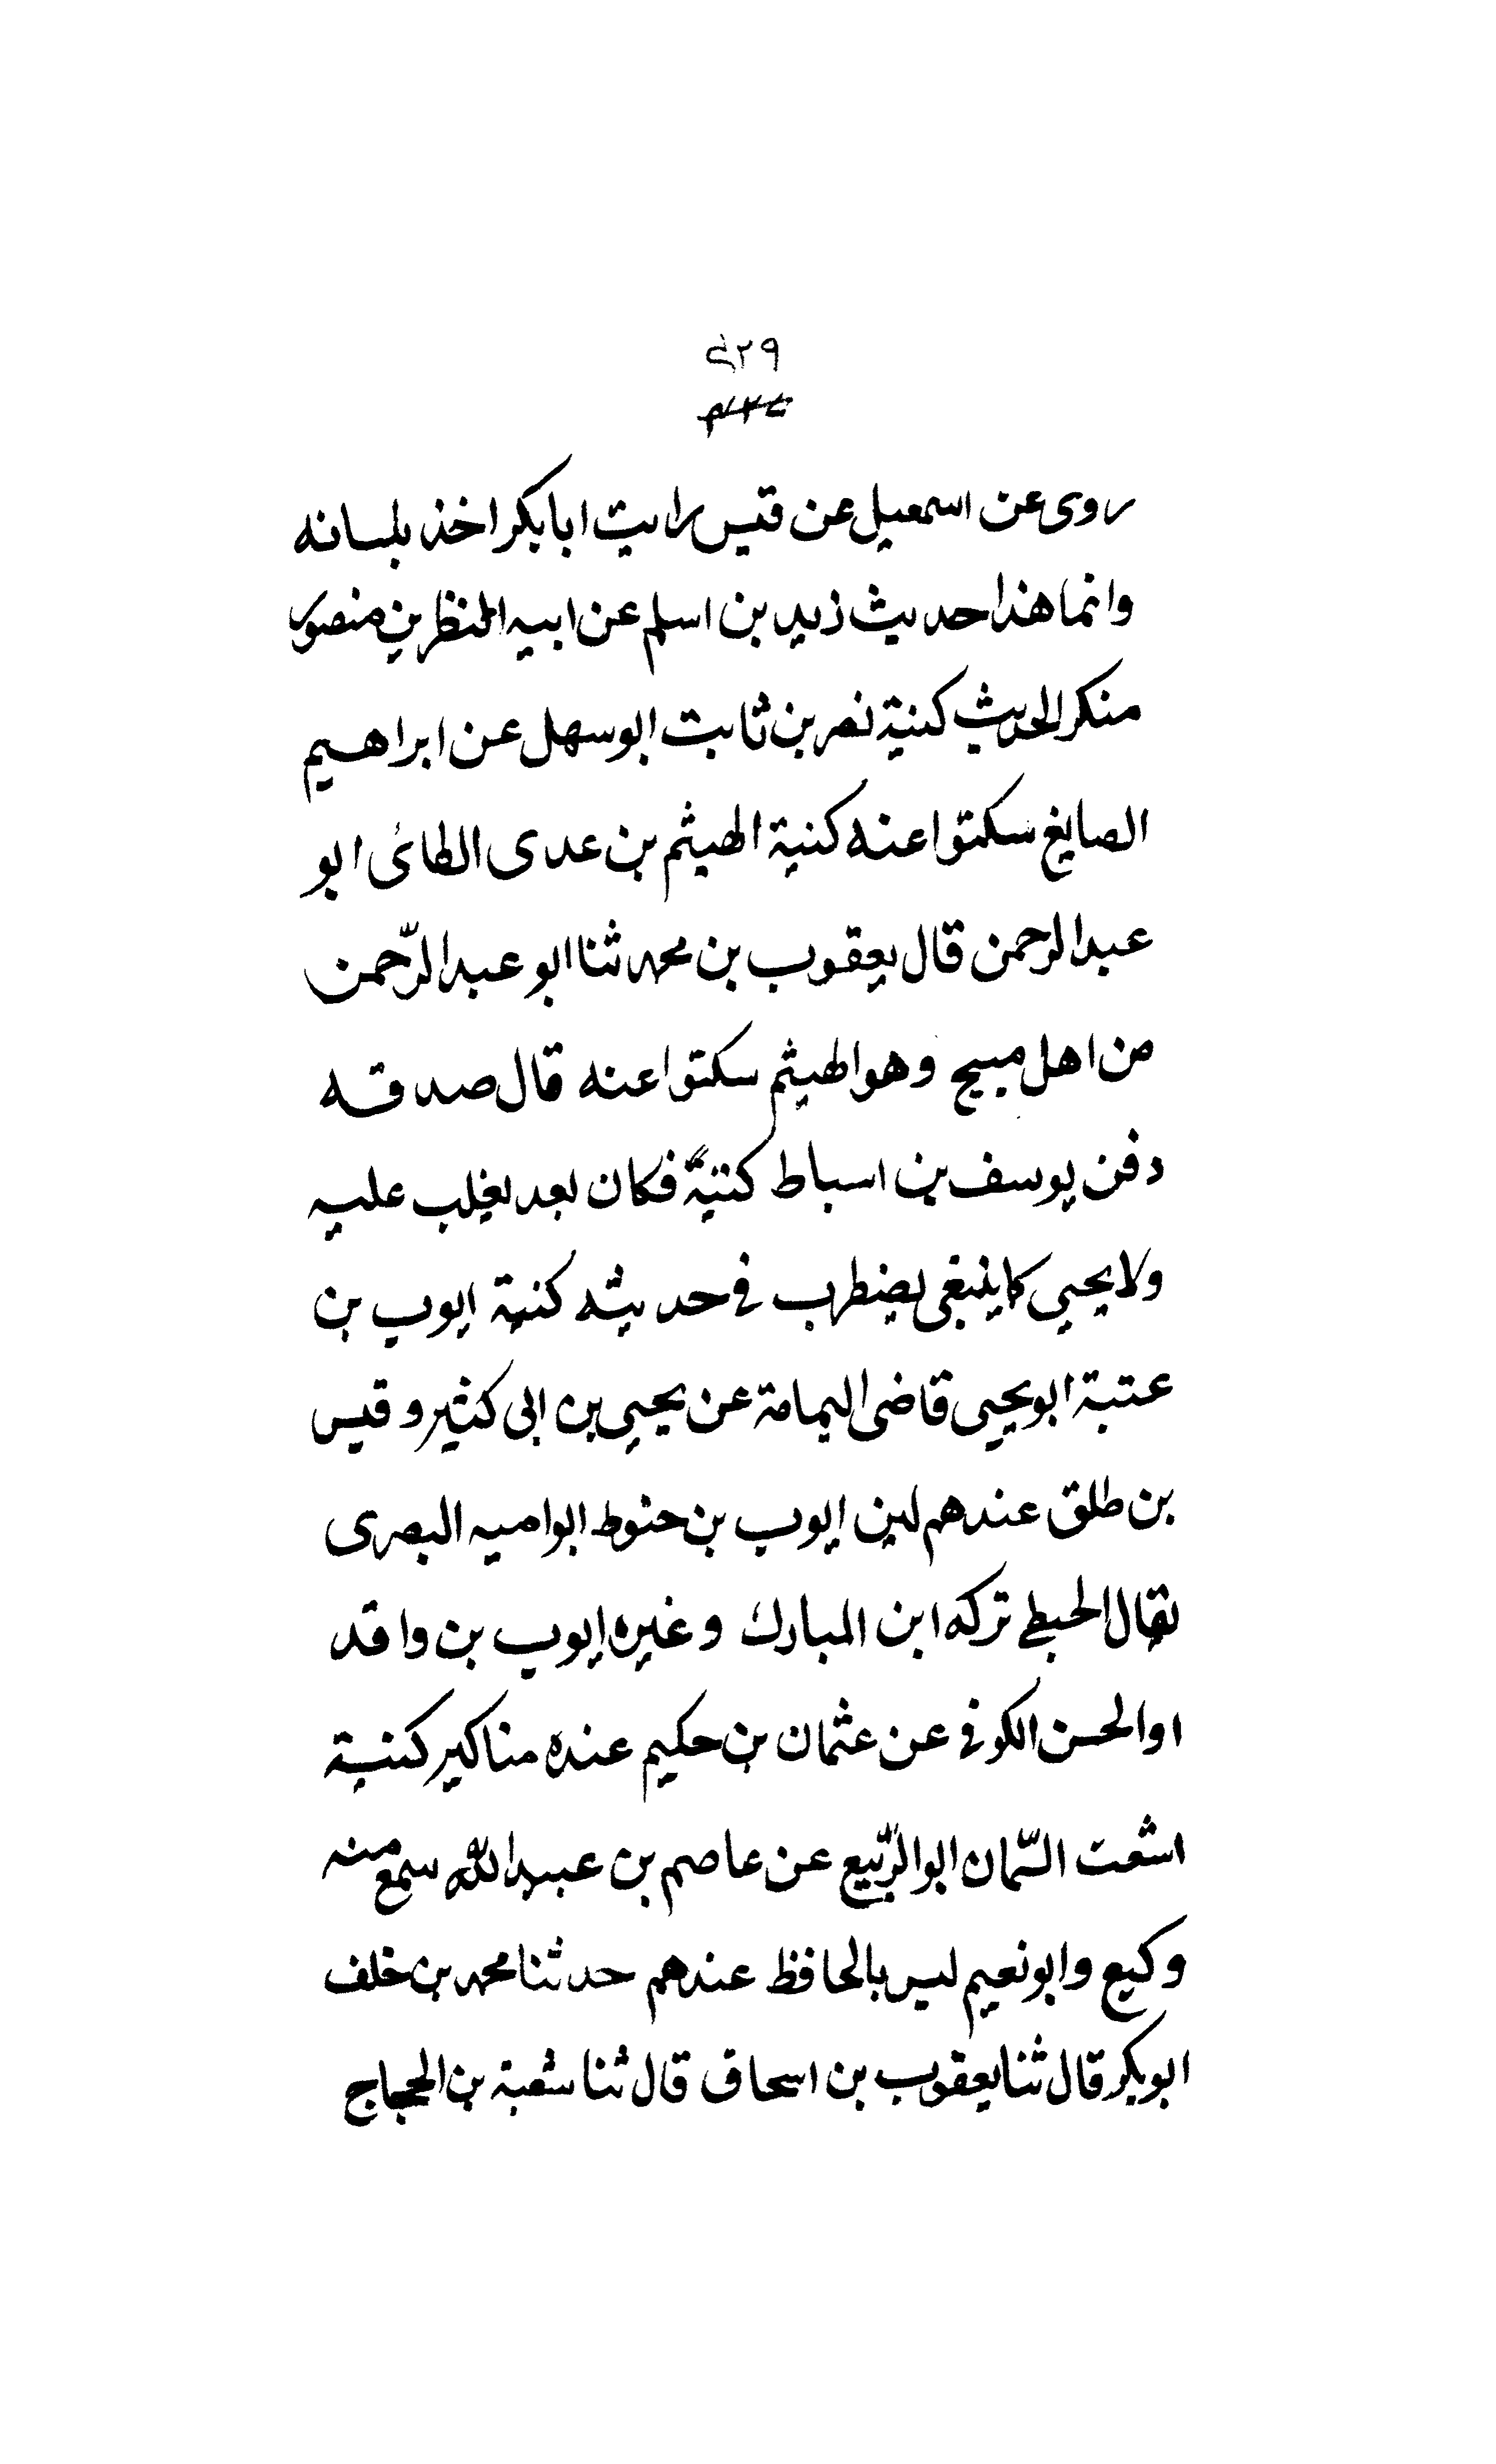 روى عن اسمعيل عن قيس رايت ابا بكر اخذ بلسانه
وانما هذا حديث زيد بن اسلم عن ابيه المنظر بن منصور
منكر الحديث كنية نصر بن ثابت ابو سهل عن ابراهيم
الصايغ سكتوا عنه كنية الهيثم بن عدى الطائى ابو
عبد الرحمن قال يعقوب بن محمد ثنا ابو عبد الرّحمن
من اهل وهو الهيثم سكتوا عنه قال صدقه
دفن يوسف بن اسباط كتبهً فكان بعد يغلب عليه
ولا يحيى كما ينبغى يضطرب فى حديثه كنية ايوب بن
عتبة ابو يحيى قاضى اليمامة عن يحيى بن ابى كثير و قيس
بن طلق عندهم لين ايوب بن خوط ابو اميه البصرى
يقال الحبطى تركه ابن المبارك و غيره ايوب بن واقد
اوالحسن الكوفى عن عثمان بن حكيم عنده مناكير كنية
اشعث السّمان ابو الرّبيع عن عاصم بن عبيد الله سمع منه
وكيع وابو نعيم ليس بالحافظ عندهم حدثنا محمد بن خلف
ابو بكر قال ثنا يعقوب بن اسحاق قال ثنا شعبة بن الحجاج